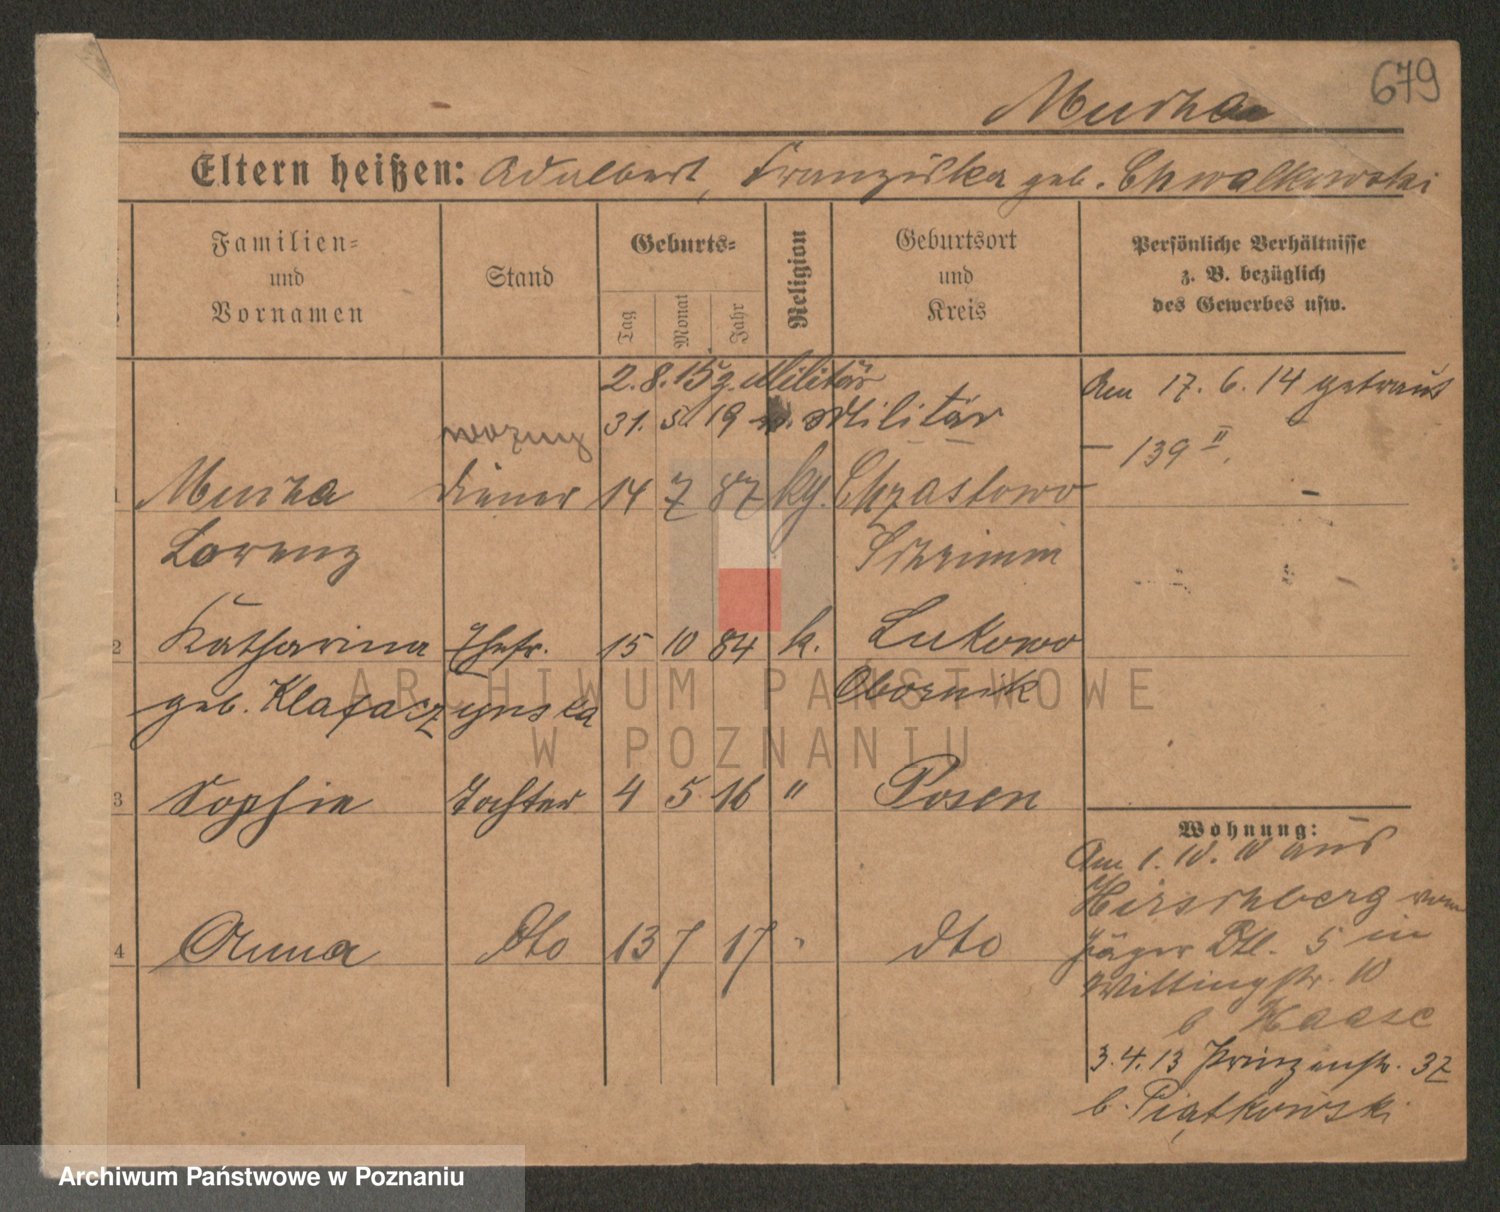 679
Mucha
Eltern heißen: Adalbert, Franziska geb. Chwalkowski
Familien= und Vornamen
Stand
Geburts=
Tag
Monat
Jahr
Religion
Geburtsort und Kreis
Persönliche Verhältnisse z. B. bezüglich des Gewerbes usw.
2. 8. 15 z. Militär
31. 5 19 v. Militär
Am 17. 6. 14 getraut
– 139 II.
1 Mucha Diener 14 7 87 kg. Chrzastowo –
Lorenz Schrimm
2 Katharina Ehefr. 15 10 84 k. Lukowo
geb. Klafaczynska Obornik
3 Sophie Tochter 4 5 16 " Posen
Wohnung:
Am 1. 10. 10 aus
Hirschberg vom
4 Anna dto 13 7 17 " dto
Jäger Btl. 5 in
Wittingstr. 10
b Haase
3. 4. 13 Prinzenstr. 37
b. Piątkowski
ARCHIWUM PAŃSTWOWE
W POZNANIU
Archiwum Państwowe w Poznaniu